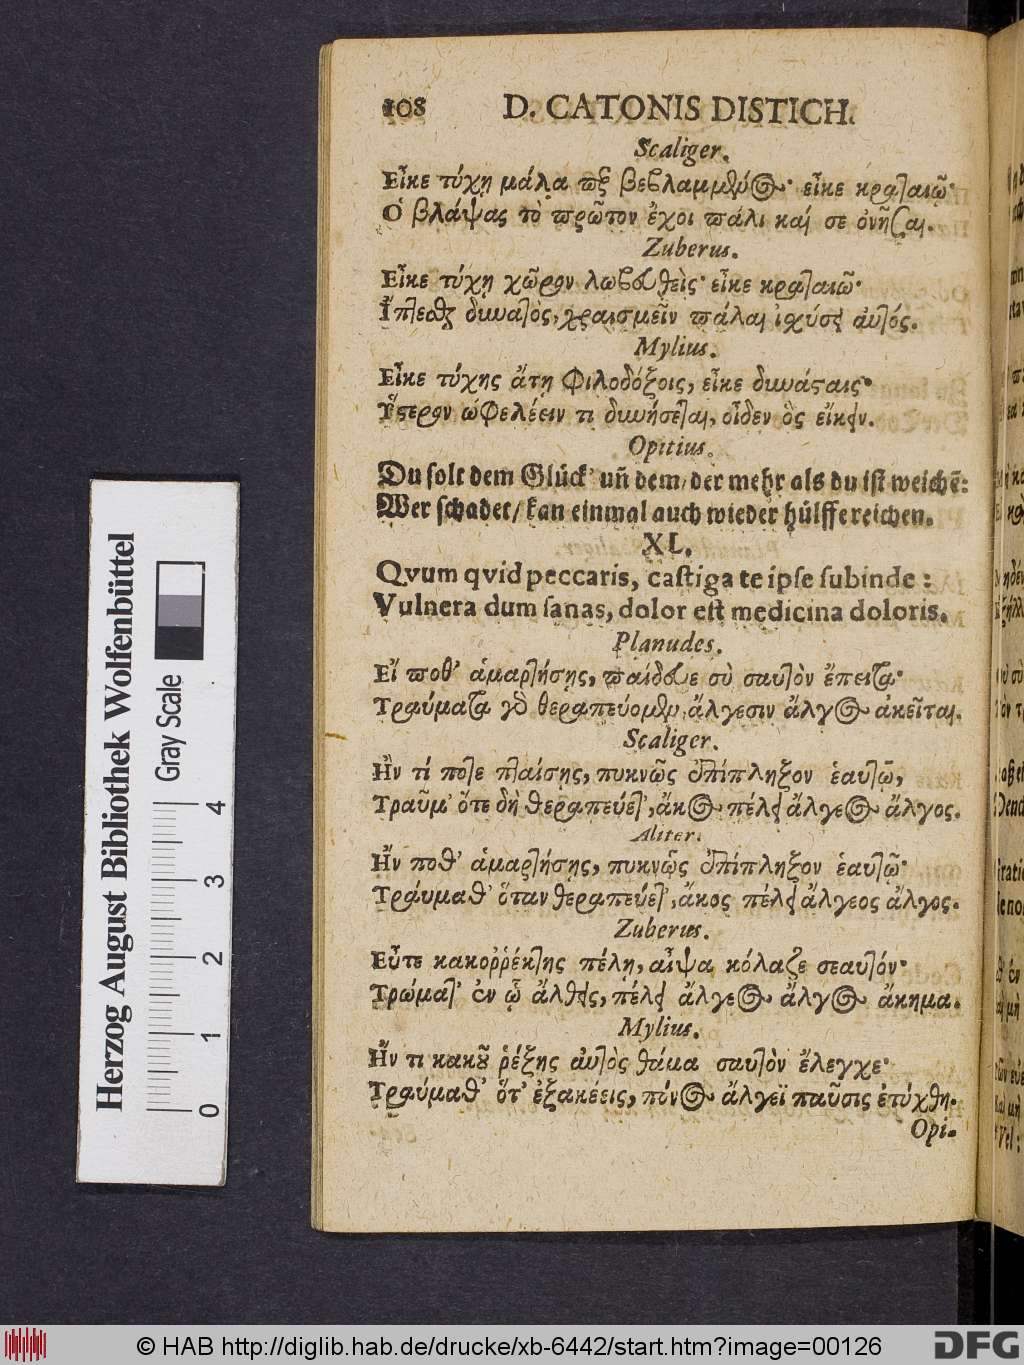 108 D. CATONIS DISTICH.
Scaliger.
Εἶκε τύχῃ μάλα περ βεβλαμμένος· εἶκε κραταιῷ·
Ὁ βλάψας τὸ πρῶτον ἔχοι πάλι καί σε ὀνῆσαι.
Zuberus.
Εἶκε τύχῃ χῶρον λωβευθεὶς· εἶκε κραταιῷ·
δυνατὸς, χραισμεῖν πάλαι ἰχύσει αὐτός.
Mylius.
Εἶκε τύχης ἄτῃ φιλοδόξοις, εἶκε δυνάσταις·
Ὕστερον ὠφελέειν τι δυνήσεται, οἶδεν ὃς εἴκειν.
Opitius.
Du solt dem Glück' uñ dem/ der mehr als du ist weichẽ:
Wer schadet/ kan einmal auch wieder hülffe reichen.
XL.
Qvum qvid peccaris, castiga te ipse subinde:
Vulnera dum sanas, dolor est medicina doloris.
Planudes.
Εἴ ποθ' ἁμαρτήσῃς, παίδευε σὺ σαυτὸν ἔπειτα·
Τραύματα γὸ θεραπεύομεν, ἄλγεσιν ἄλγος ἀκεῖται.
Scaliger.
Ἤν τί ποτε πταίσῃς, πυκνῶς ἐπίπληξον ἑαυτῷ,
Τραῦμ' ὅτε δὴ θεραπεύετ', ἄκος πέλει ἄλγεος ἄλγος.
Aliter.
Ἢν ποθ' ἁμαρτήσῃς, πυκνῷς ἐπίπληξον ἑαυτῷ·
Τράυμαθ' ὅταν θεραπεύετ', ἄκος πέλει ἄλγεος ἄλγος.
Zuberus.
Εὖτε κακοῤῥέκτης πέλῃ, αἶψα κόλαζε σεαυτόν·
Τρώματ' ἐν ᾧ ἄλθεις, πέλει ἄλγεος ἄλγος ἄκημα.
Mylius.
Ἤν τι κακοῦ ῥέξῃς αὐτὸς θάμα σαυτὸν ἔλεγχε·
Τραύμαθ' ὅτ' ἐξακέεις, πόνος ἄλγεϊ παῦσις ἐτύχθη.
Opi.
Herzog August Bibliothek Wolfenbüttel
Gray Scale
0 1 2 3 4
© HAB http://diglib.hab.de/drucke/xb-6442/start.htm?image=00126
DFG